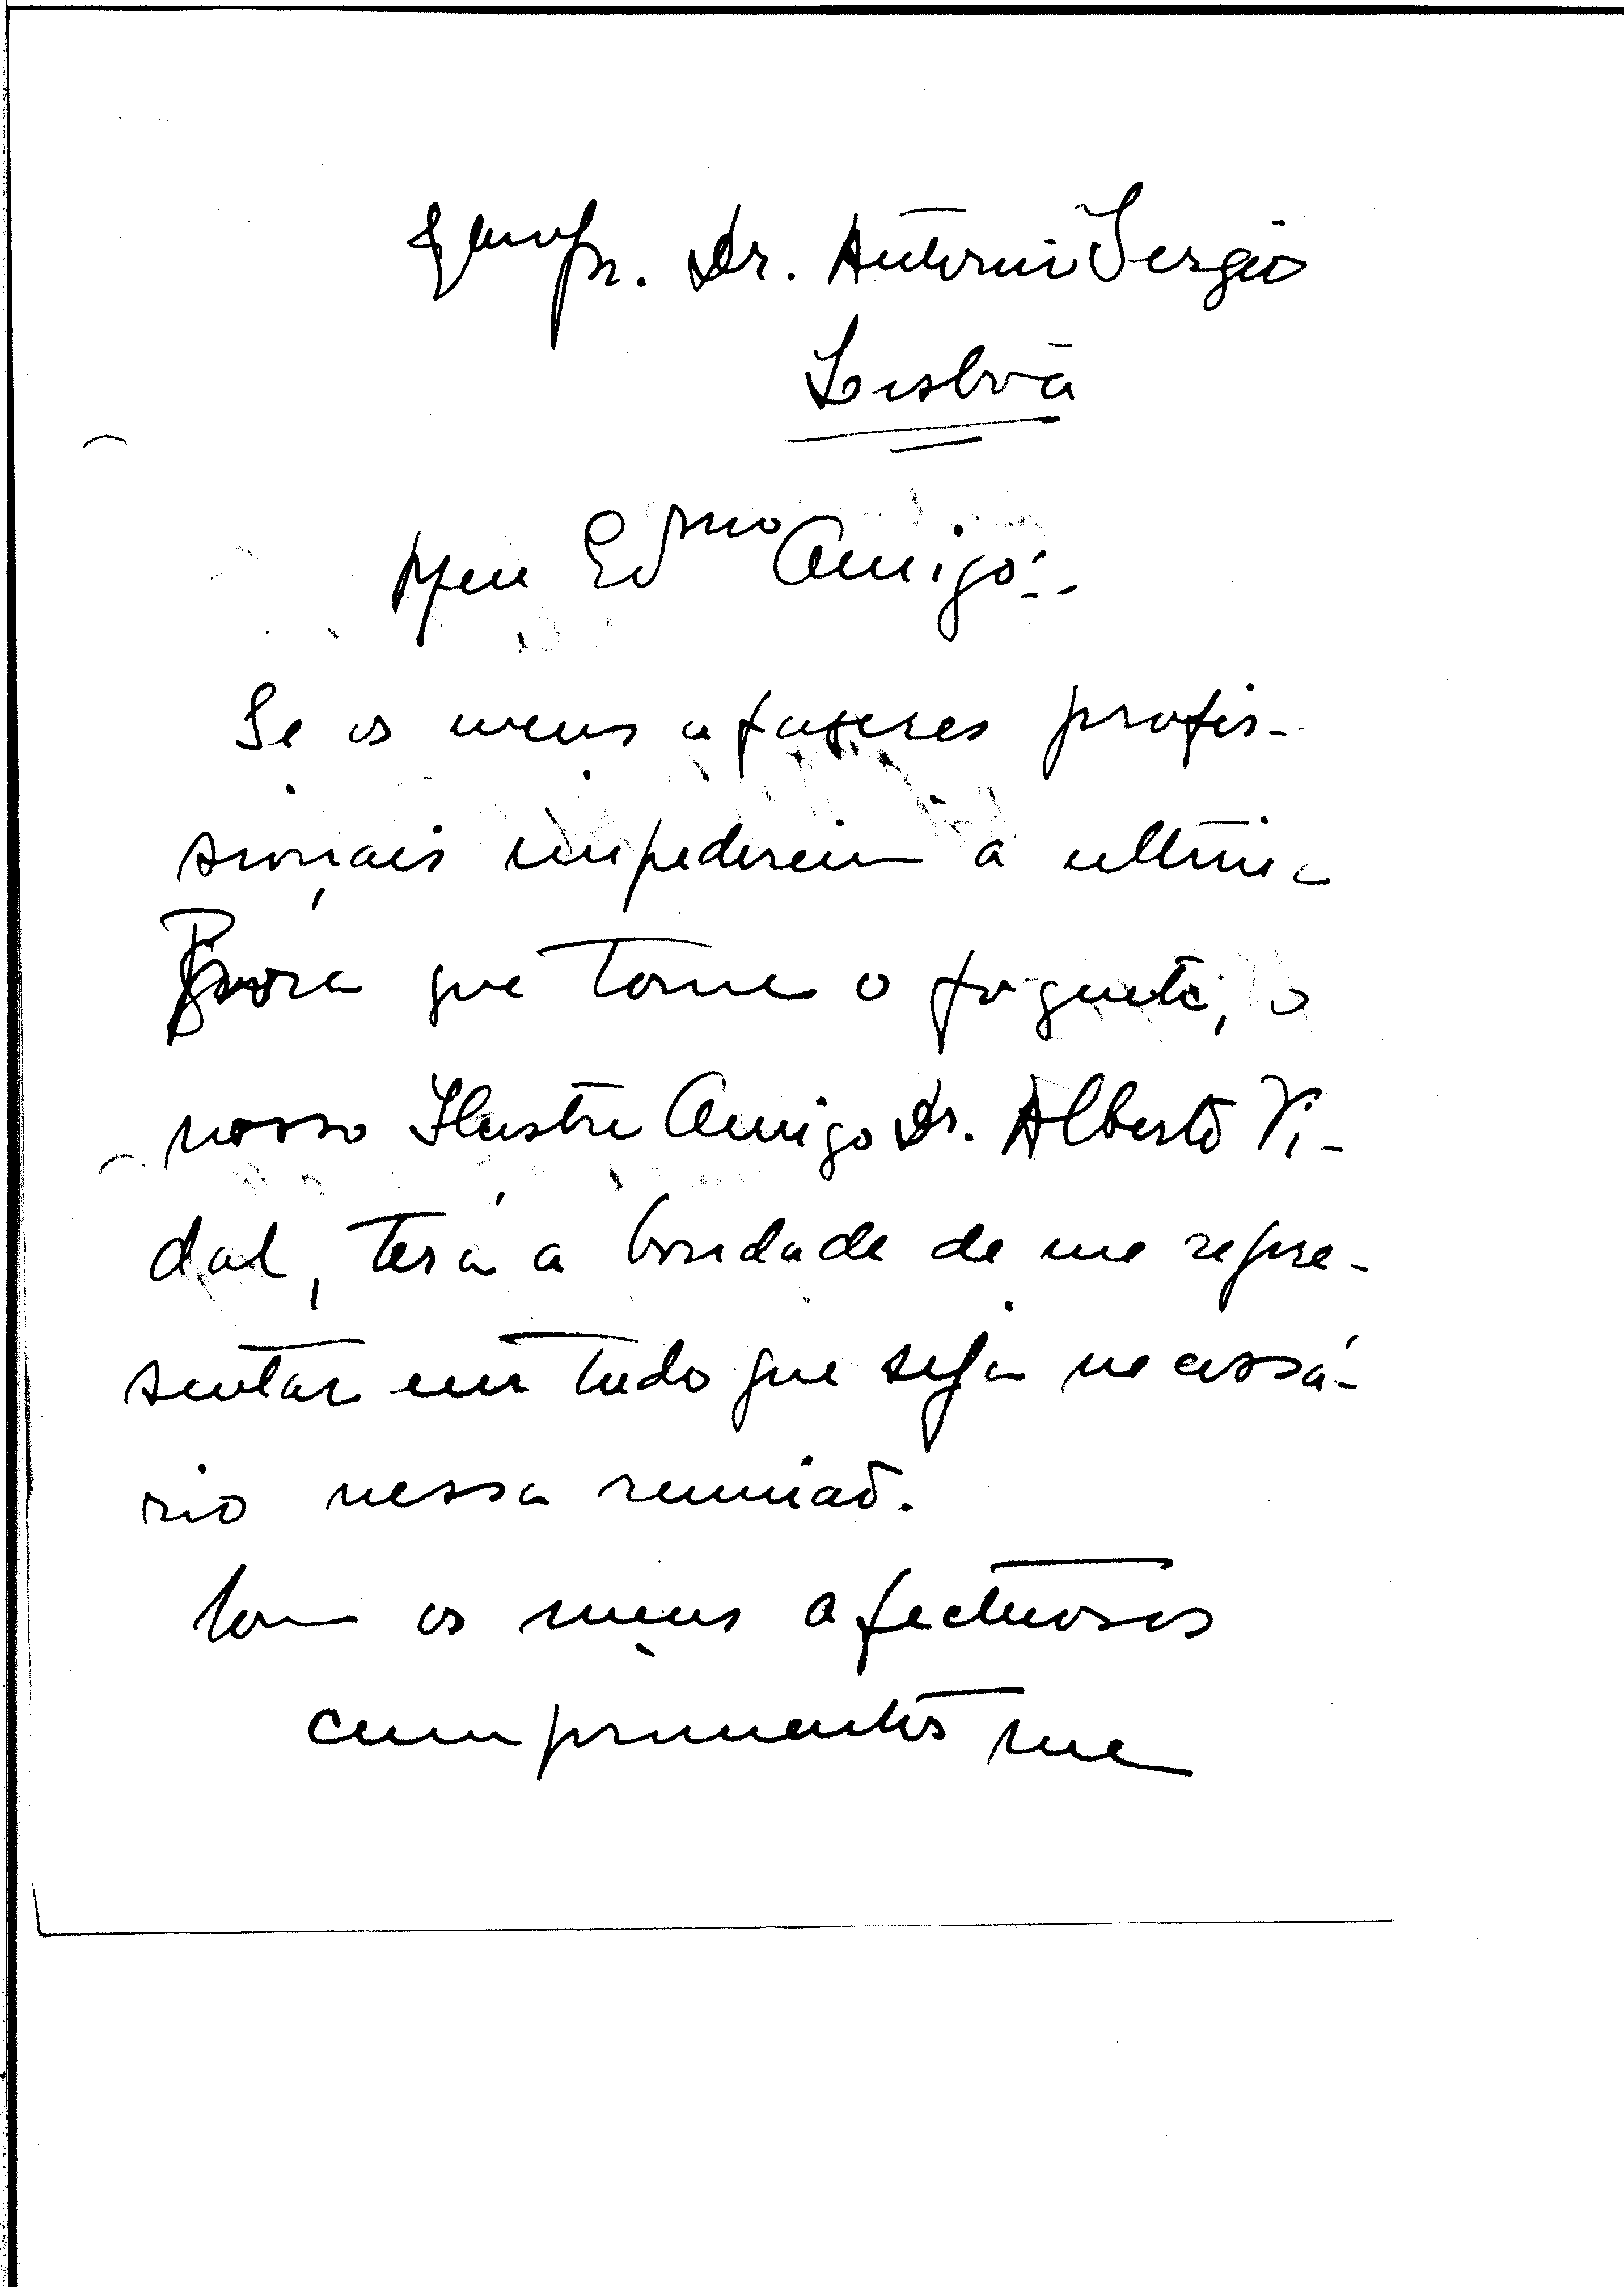 Exmo Sr. Dr. Antonio Sergio
Lisboa
Meu Exmo Amigo:-
Se os meus afazeres profis-
sionais impedirem á ultima
hora que tome o foguete, o
nosso Ilustre Amigo Dr. Alberto Vi-
dal, terá a bondade de me repre-
sentar em tudo que seja necessá-
rio nessa reunião.
Com os meus afectuosos
cumprimentos me